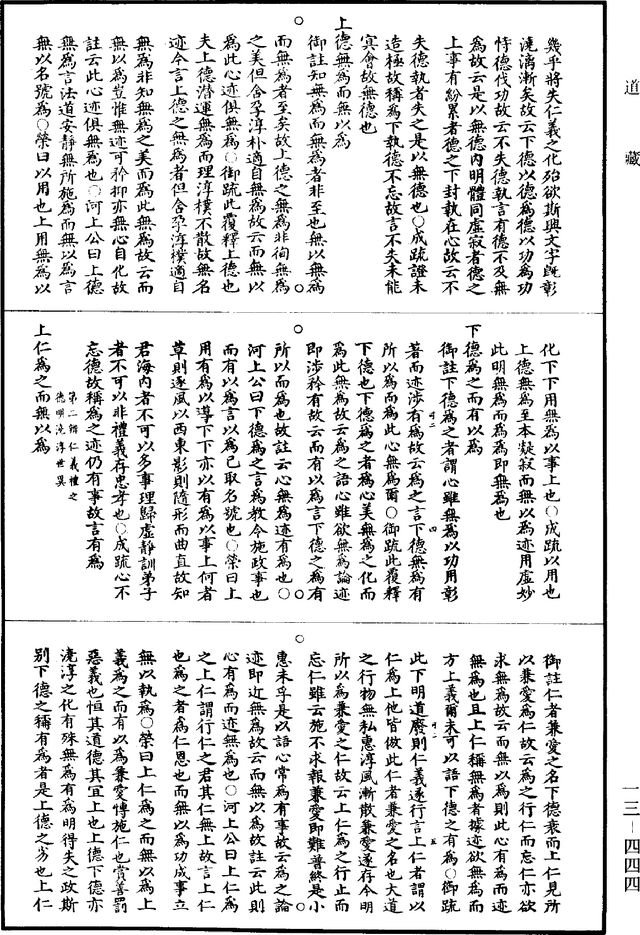 道藏
幾乎將失仁義之化殆欲斯興文字旣彰
澆漓漸矣故云下德以德爲德以功爲功
恃德伐功故云不失德執言有德不及無
爲故云是以無德內明體同虛寂者德之
上事有紛累者德之下封執在心故云不
失德執者失之是以無德也○成疏證未
造極故稱爲下執德不忘故言不失未能
冥會故無德也
上德無爲而無以爲
御註知無爲而無爲者非至也無以無爲
而無爲者至矣故上德之無爲非徇無爲
之美但含孕淳朴適自無爲故云而無以
爲此心迹俱無爲○御疏此覆釋上德也
夫上德潛運無爲而理淳樸不散故無名
迹今言上德之無爲者但含孕淳樸適自
無爲非知無爲之美而爲此無爲故云而
無以爲豈惟無迹可矜抑亦無心自化故
註云此心迹俱無爲也○河上公曰上德
無爲言法道安靜無所施爲而無以爲言
無以名號爲○榮曰以用也上用無爲以
化下下用無爲以事上也○成疏以用也
上德無爲至本凝寂而無以爲迹用虛妙
此明無爲而無爲爲即無爲也
下德爲之而有以爲
御註下德爲之者謂心雖無爲以功用彰
著而迹涉有爲故云爲之言下德無爲有
所以爲而爲此心無爲爾○御疏此覆釋
下德也下德爲之者爲心美無爲之化而
爲此無爲故云爲之語心雖欲無爲論迹
即涉矜有故云而有以爲言下德之爲有
所以而爲也故註云心無爲迹有爲也○
河上公曰下德爲之言爲教令施政事也
而有以爲言以爲己取名號也○榮曰上
用有爲以導下下亦以有爲以事上何者
草則逐風以西東影則隨形而曲直故知
君海內者不可以多事理歸虛靜訓弟子
者不可以非禮義存忠孝也○成疏心不
忘德故稱爲之迹仍有事故言有爲
第二〓仁義禮之
德明澆淳世異
上仁爲之而無以爲
御註仁者兼愛之名下德衰而上仁見所
以兼愛爲仁故云爲之行仁而忘仁亦欲
求無爲故云而無以爲則此心有爲而迹
無爲也且上仁稱無爲者據迹欲無爲而
方上義爾未可以語下德之有爲○御疏
此下明道廢則仁義遂行言上仁者謂以
仁爲上他皆倣此仁者兼愛之名也大道
之行物無私惠淳風漸散兼愛遂存今明
所以爲兼愛之仁故云上仁爲之行止而
忘仁雖云施不求報兼愛即難普終是小
惠未孚是以語心常爲有事故云爲之論
迹即近無爲故云而無以爲故註云此則
心有爲而迹無爲也○河上公曰上仁爲
之上仁謂行仁之君其仁無上故言上仁
也爲之者爲仁恩也而無以爲功成事立
無以執爲○榮曰上仁爲之而無以爲上
義爲之而有以爲兼愛博施仁也賞善罰
惡義也恒其道德其宜上也上德下德亦
澆淳之化有殊無爲有爲明得失之政斯
別下德之稱有爲者是上德之劣也上仁
一三—四四四